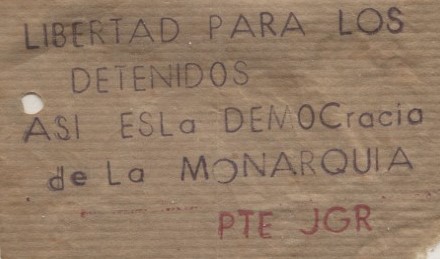 LIBERTAD PARA LOS
DETENIDOS
ASI ESLa DEMOCracia
de La MONARQUIA
PTE JGR